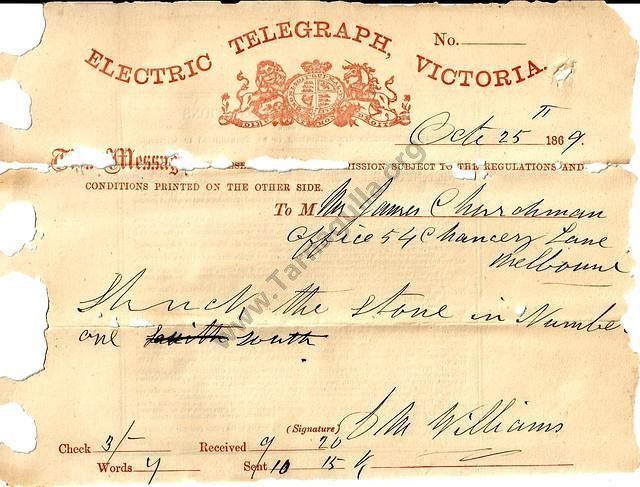 ELECTRIC TELEGRAPH, VICTORIA.
No.
Oct 25 1869.
MISSION SUBJECT TO THE REGULATIONS AND
CONDITIONS PRINTED ON THE OTHER SIDE.
To Mr James Churchman
Office 54 Chancery Lane
Melbourne
Struck the stone in Number
one south south
(Signature) Williams
Check 3/- Received 9 20
Words 9 Sent 10 15
www.Tarnagulla.org